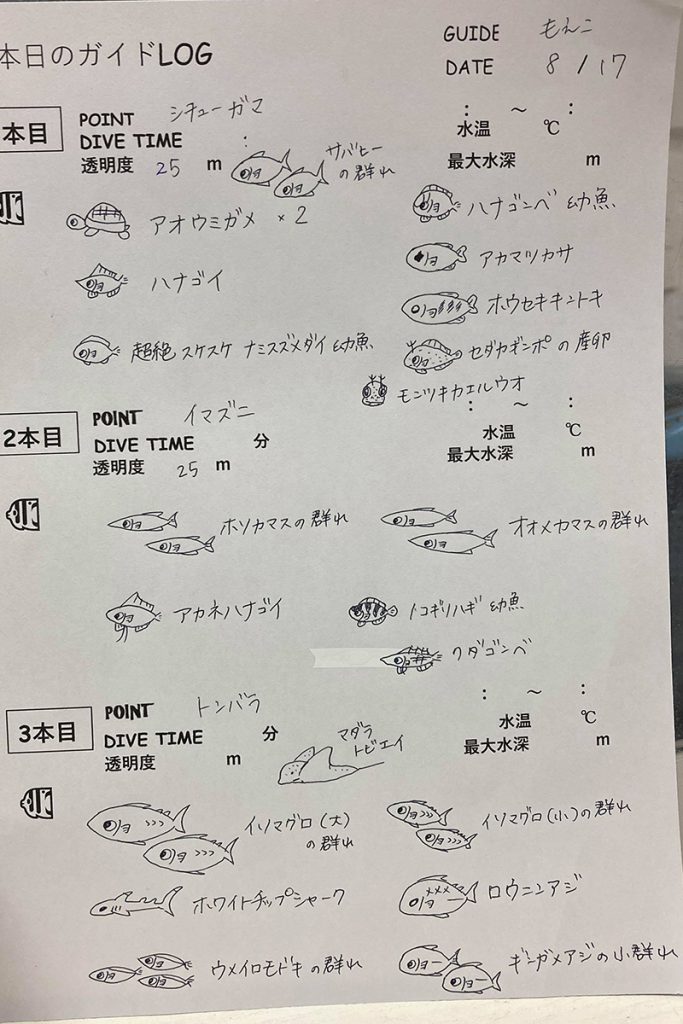 本日のガイドLOG
GUIDE もえこ
DATE 8 / 17
本目
POINT シチューガマ
DIVE TIME :
透明度 25 m
: ～ :
水温 ℃
最大水深 m
サバヒー
の群れ
アオウミガメ ×2
ハナゴンベ 幼魚
アカマツカサ
ハナゴイ
ホウセキキントキ
超絶スケスケ ナミスズメダイ 幼魚
セダカギンポの産卵
モンツキカエルウオ
2本目
POINT イマズニ
DIVE TIME 分
透明度 25 m
: ～ :
水温 ℃
最大水深 m
ホソカマスの群れ
オオメカマスの群れ
アカネハナゴイ
ノコギリハギ 幼魚
クダゴンベ
3本目
POINT トンバラ
DIVE TIME 分
透明度 m
: ～ :
水温 ℃
最大水深 m
マダラ
トビエイ
イソマグロ(大)
の群れ
イソマグロ(小)の群れ
ホワイトチップシャーク
ロウニンアジ
ウメイロモドキの群れ
ギンガメアジの小群れ